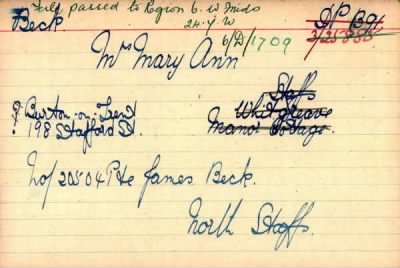 Field passed to Region 6. W Mids
Beck. 24.4.20 DP B94
6/D/1709
Mrs Mary Ann
Staffs
Burton-on-Trent Whitgreave
198 Stafford St. Manor Cottage
W/o 20504 Pte James Beck.
North Staffs.